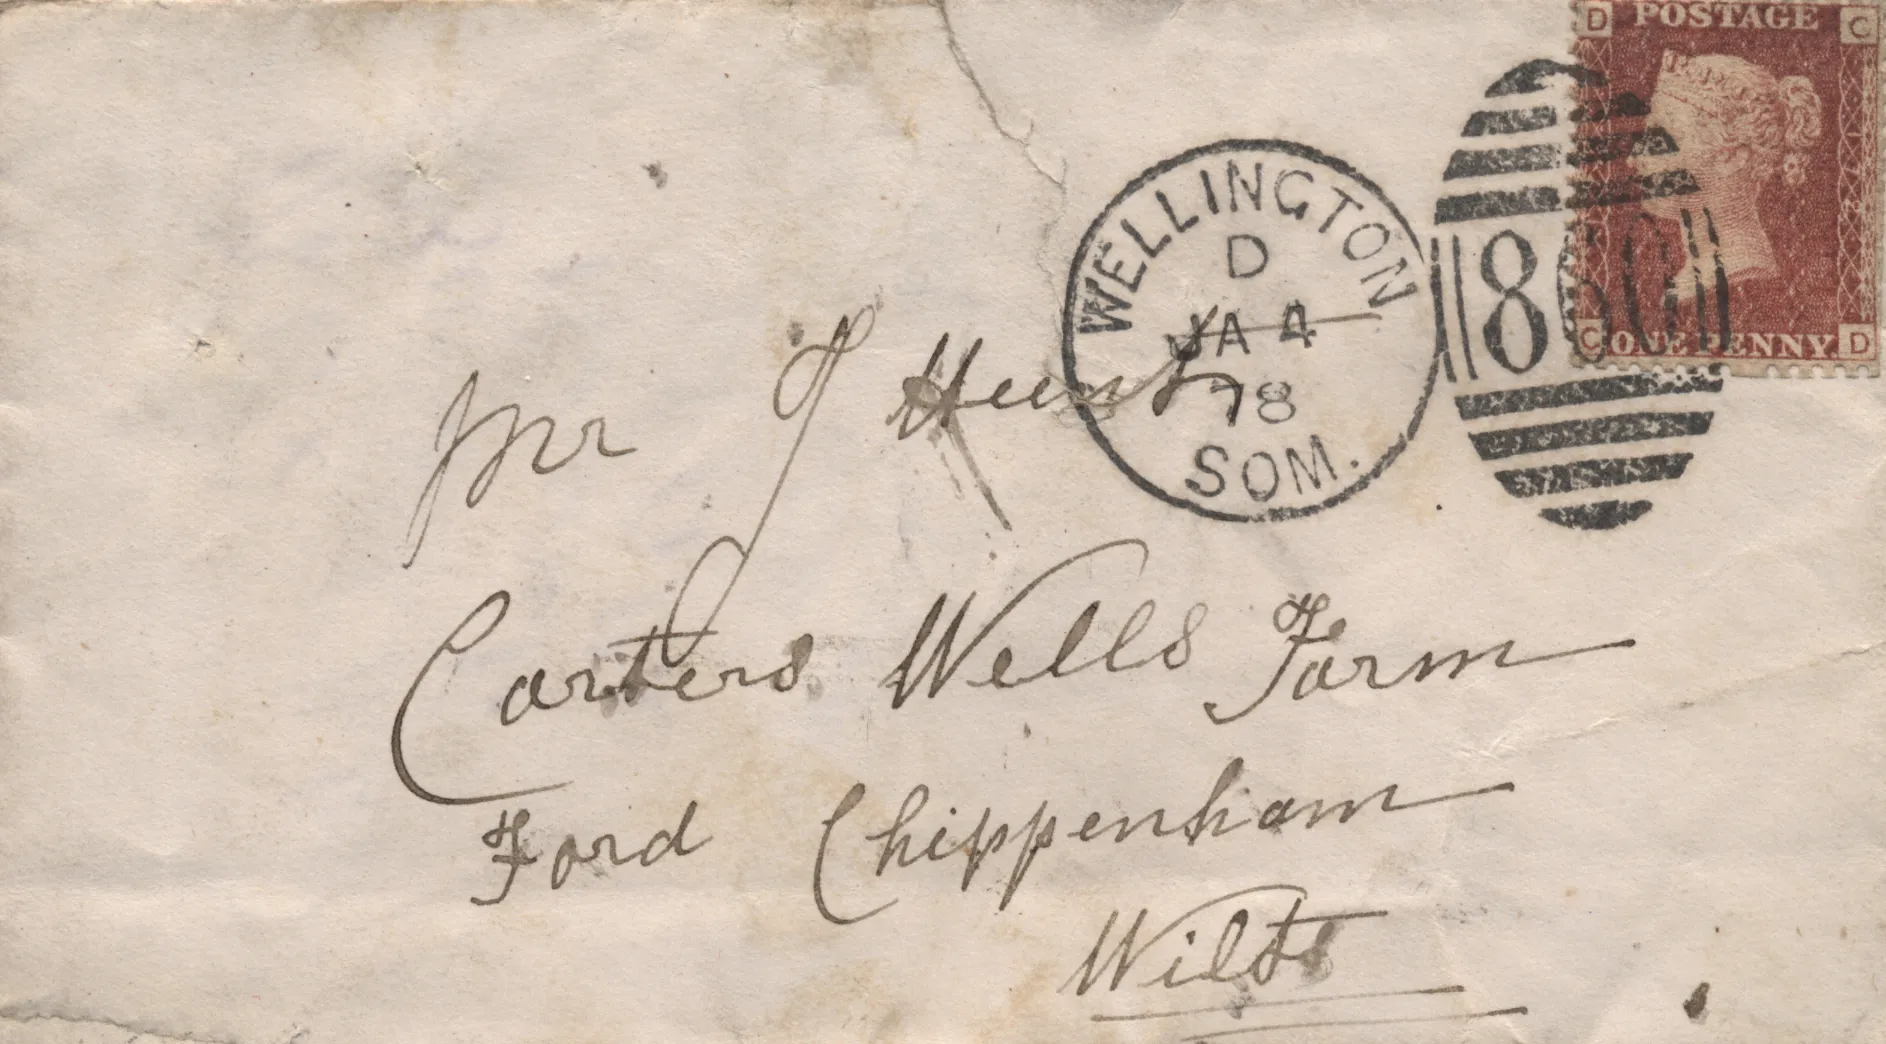 D POSTAGE C
C ONE PENNY. D
WELLINGTON
D
JA 4
78
SOM.
860
Mr J Hunt
Carters Wells Farm
Ford Chippenham
Wilts